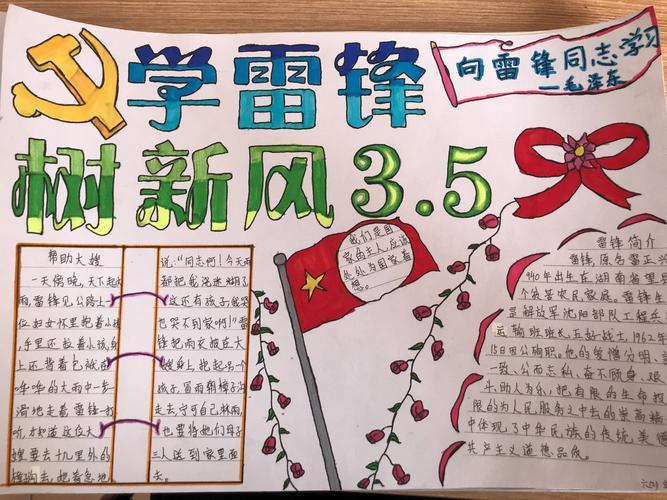 学雷锋
向雷锋同志学习
—毛泽东
树新风3.5
帮助大嫂
一天傍晚，天下起大
雨，雷锋见公路上
位妇女怀里抱着小孩
手里还拉着小孩，身
上还背着包袱，在
哗哗的大雨中一步
滑地走着雷锋一打
听，才知道这位大
嫂要去十几里外的
她着急地
说："同志啊！今天雨
都把我浇迷糊了
这还有孩子，我哭
也哭不到家啊！"雷
锋把雨衣披在大
嫂身上，抱起一个
孩子，冒雨朝樟子沟
走去，宁可自己淋雨，
也要将她们母子
三人送到家里面
去。
我们是国
家的主人，应该
处处为国家着
想。
雷锋简介
雷锋，原名雷正兴
940年出生在湖南省望
个贫苦农民家庭。雷锋生
是解放军沈阳部队工程兵
运输班班长，五好战士，1962年
15日因公殉职。他的爱憎分明、
一致、公而忘私、奋不顾身、艰
斗、助人为乐，把有限的生命投
限的为人民服务之中去的崇高精
中体现了中华民族的传统美德
共产主义道德品质。